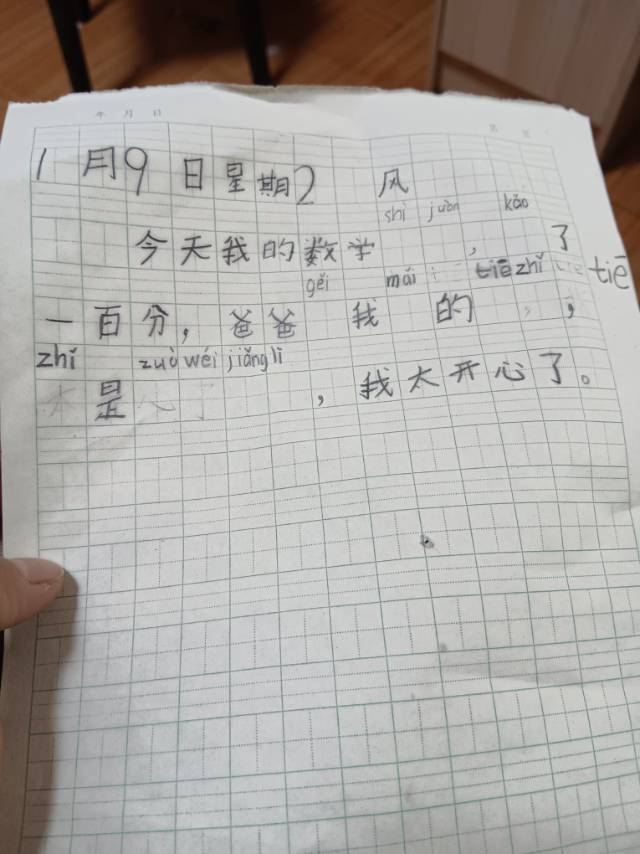 年 月 日
1月9日星期2 风
shì juàn kǎo
今天我的数学 , 了
gěi mái tiēzhǐ tiē
一百分,爸爸 我 的 ,
zhǐ zuò wéi jiǎng lì
是 ,我太开心了。